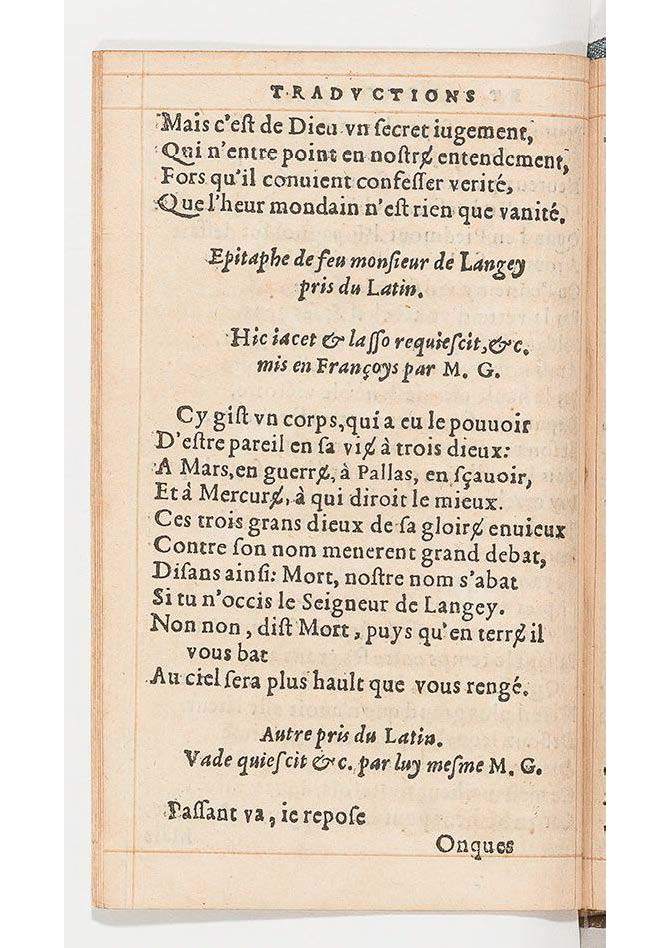 TRADVCTIONS
Mais c'eſt de Dieu vn ſecret iugement,
Qui n'entre point en noſtrɇ entendement,
Fors qu'il conuient confeſſer verité,
Que l'heur mondain n'eſt rien que vanité.
Epitaphe de feu monſieur de Langey
pris du Latin.
Hic iacet & laſſo requieſcit, &c.
mis en Françoys par M. G.
Cy giſt vn corps, qui a eu le pouuoir
D'eſtre pareil en ſa viɇ à trois dieux:
A Mars, en guerrɇ, à Pallas, en ſçauoir,
Et à Mercurɇ, à qui diroit le mieux.
Ces trois grans dieux de ſa gloirɇ enuieux
Contre ſon nom menerent grand debat,
Diſans ainſi: Mort, noſtre nom s'abat
Si tu n'occis le Seigneur de Langey.
Non non, diſt Mort, puys qu'en terrɇ il
vous bat
Au ciel ſera plus hault que vous rengé.
Autre pris du Latin.
Vade quieſcit &c. par luy meſme M. G.
Paſſant va, ie repoſe
Onques